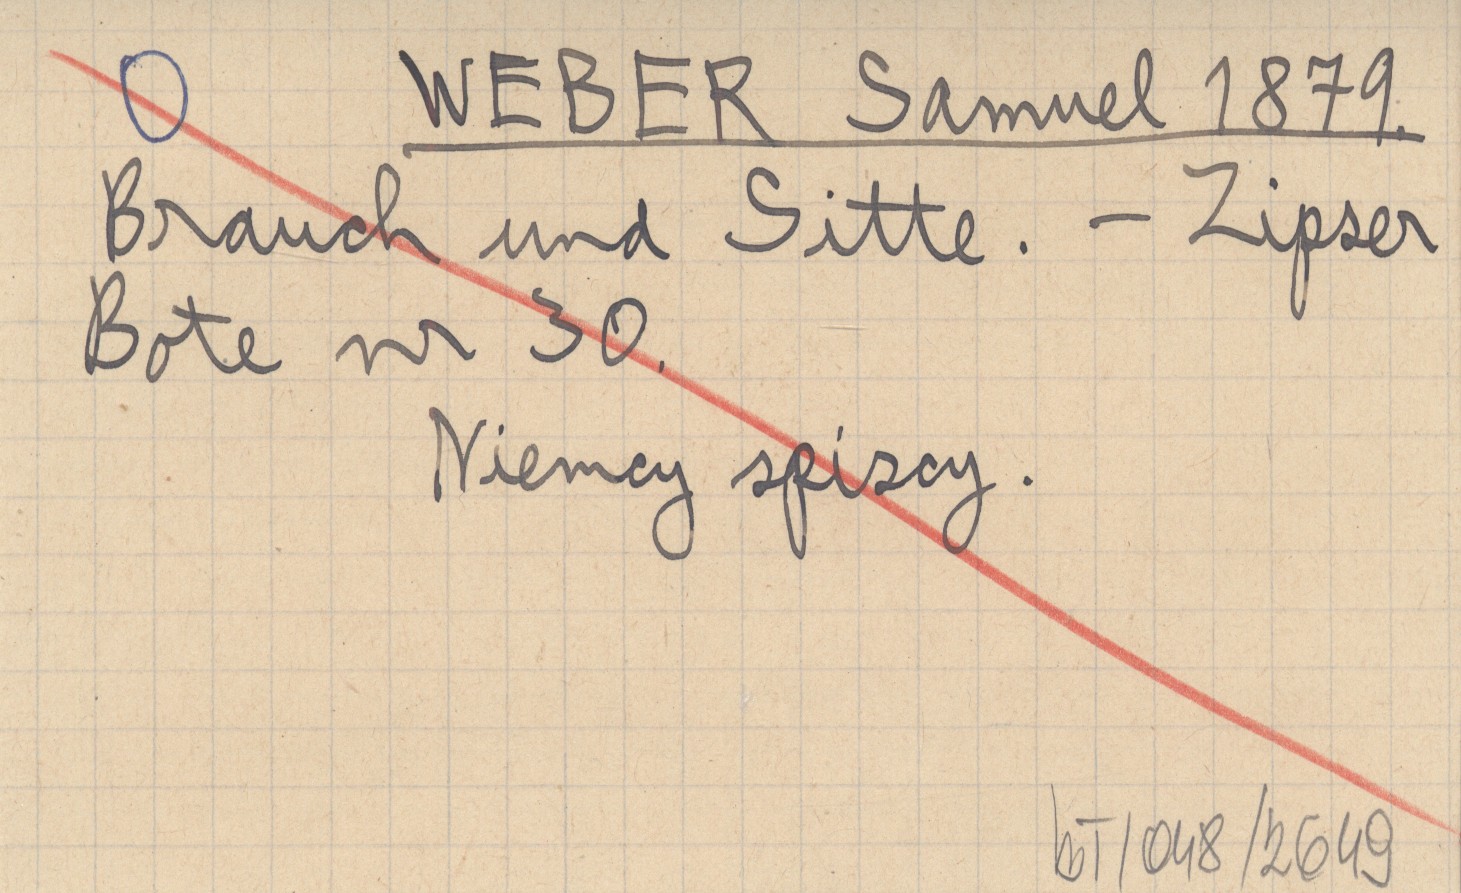 O WEBER Samuel 1879.
Brauch und Sitte. - Zipser
Bote nr 30.
Niemcy spiscy.
bT/048/2649